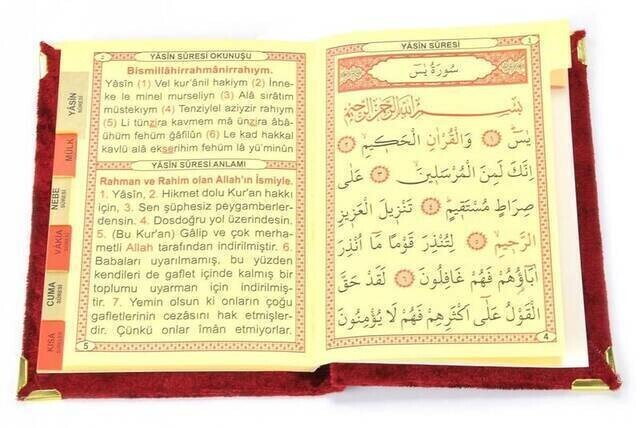 YÂSÎN SÛRESİ OKUNUŞU
Bismillâhirrahmânirrahıym.
Yâsîn (1) Vel kur'ânil hakiym (2) İnne-
ke le minel murseliyn (3) Alâ sırâtim
müstekıym (4) Tenziylel aziyzir rahıym
(5) Li tünzira kavmem mâ ünzira âbâ-
ühüm fehüm ğâfilûn (6) Le kad hakkal
kavlü alâ ekserihim fehüm lâ yü'minûn
YÂSÎN SÛRESİ ANLAMI
Rahman ve Rahim olan Allah'ın İsmiyle.
1. Yâsîn, 2. Hikmet dolu Kur'an hakkı
için, 3. Sen şüphesiz peygamberler-
densin. 4. Dosdoğru yol üzerindesin.
5. (Bu Kur'an) Gâlip ve çok merha-
metli Allah tarafından indirilmiştir. 6.
Babaları uyarılmamış, bu yüzden
kendileri de gaflet içinde kalmış bir
toplumu uyarman için indirilmiş-
tir. 7. Yemin olsun ki onların çoğu
gafletlerinin cezasını hak etmişler-
dir. Çünkü onlar îmân etmiyorlar.
5
YÂSÎN SÛRESİ
MÜLK
NEBE SÛRESİ
VAKIA
CUMA SÛRESİ
KISA
YÂSÎN SÛRESİ
سُورَةُ يٰسٓ
بِسْمِ اللّٰهِ الرَّحْمٰنِ الرَّحِيمِ
يٰسٓ ١ وَالْقُرْاٰنِ الْحَكِيمِ ٢
اِنَّكَ لَمِنَ الْمُرْسَلِينَ ٣ عَلٰى
صِرَاطٍ مُسْتَقِيمٍ ٤ تَنْزِيلَ الْعَزِيزِ
الرَّحِيمِ ٥ لِتُنْذِرَ قَوْمًا مَٓا اُنْذِرَ
اٰبَٓاؤُهُمْ فَهُمْ غَافِلُونَ ٦ لَقَدْ حَقَّ
الْقَوْلُ عَلٰٓى اَكْثَرِهِمْ فَهُمْ لَا يُؤْمِنُونَ
4